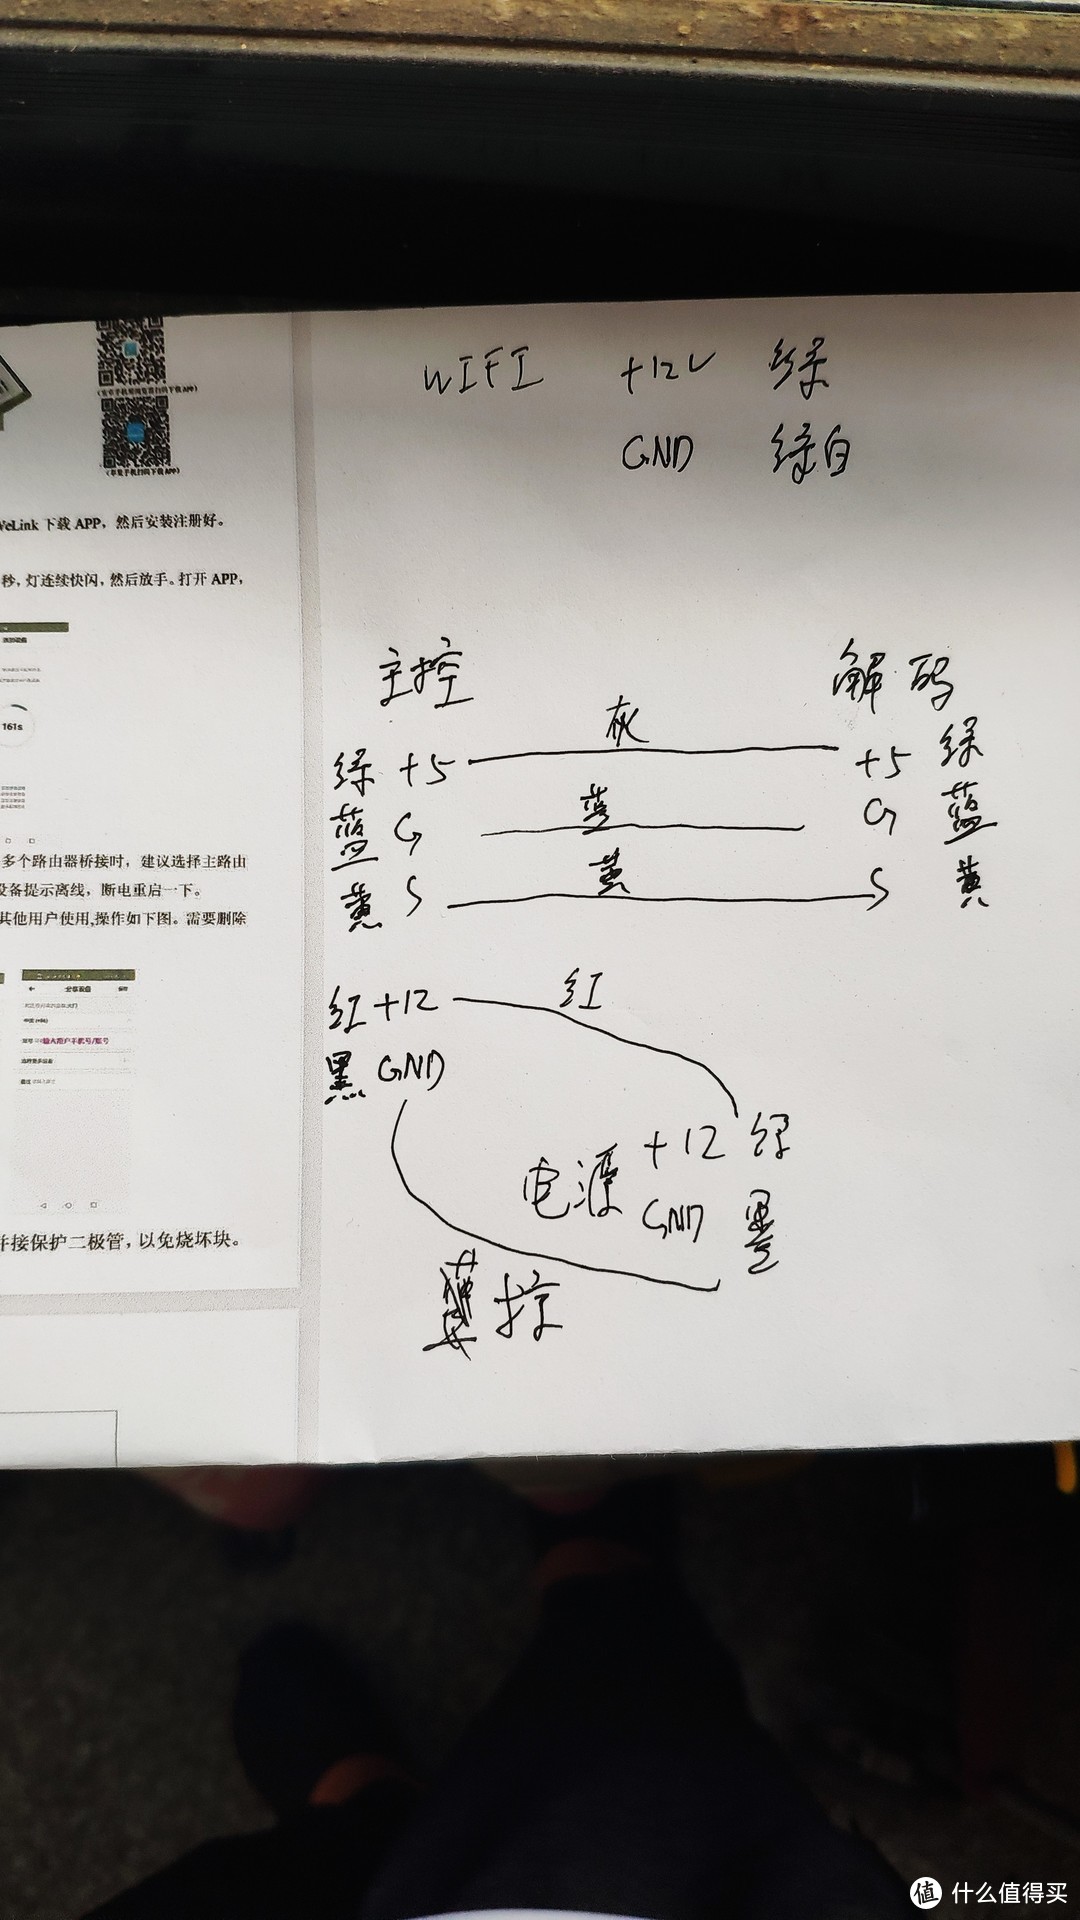 (苹果手机扫码下载APP)
WeLink 下载 APP，然后安装注册好。
秒，灯连续快闪，然后放手。打开 APP，
161s
多个路由器桥接时，建议选择主路由
设备提示离线，断电重启一下。
其他用户使用,操作如下图。需要删除
分享设备
输入用户手机号/账号
并接保护二极管，以免烧坏块。
WIFI +12V 绿
GND 绿白
主控 解码
灰
绿 +5 +5 绿
蓝
蓝 G G 蓝
黄
黄 S S 黄
红 +12 红
黑 GND
电源 +12 绿
GND 墨
控
值 什么值得买